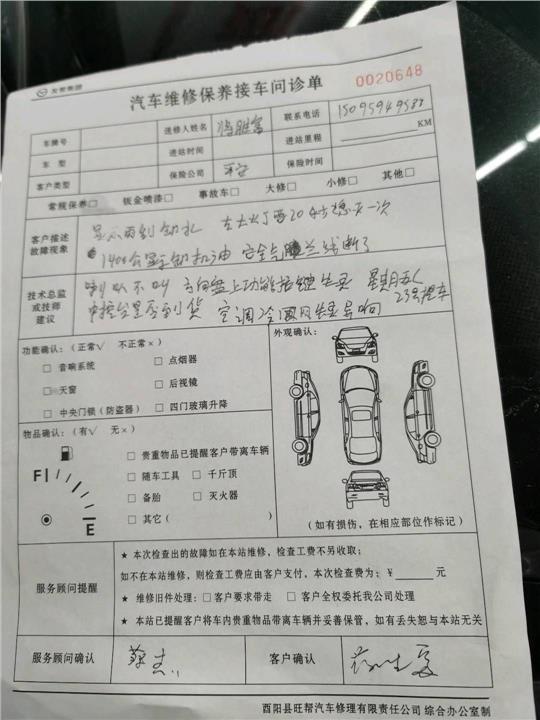 汽车维修保养接车问诊单
0020648
车牌号 送修人姓名 联系电话
车 型 进站时间 进站里程 KM
客户类型 保险公司 平安 保险时间
常规保养□ 钣金喷漆□ 事故车□ 大修□ 小修□ 其他□
客户描述
故障现象
技术总监
或技师
建议
喇叭不叫 方向盘上功能按键失灵
空调冷风
功能确认：（正常√ 不正常×）
□ 音响系统 □ 点烟器
□ 天窗 □ 后视镜
□ 中央门锁（防盗器） □ 四门玻璃升降
外观确认：
物品确认：（有√ 无×）
F
E
□ 贵重物品已提醒客户带离车辆
□ 随车工具 □ 千斤顶
□ 备胎 □ 灭火器
□ 其它（ ）
（如有损伤，在相应部位作标记）
服务顾问提醒
★ 本次检查出的故障如在本站维修，检查工费不另收取；
如不在本站维修，则检查工费应由客户支付，本次检查费为：￥ 元
★ 维修旧件处理：□ 客户要求带走 □ 客户全权委托我公司处理
★ 本站已提醒客户将车内贵重物品带离车辆并妥善保管，如有丢失恕与本站无关
服务顾问确认 客户确认
酉阳县旺帮汽车修理有限责任公司 综合办公室制